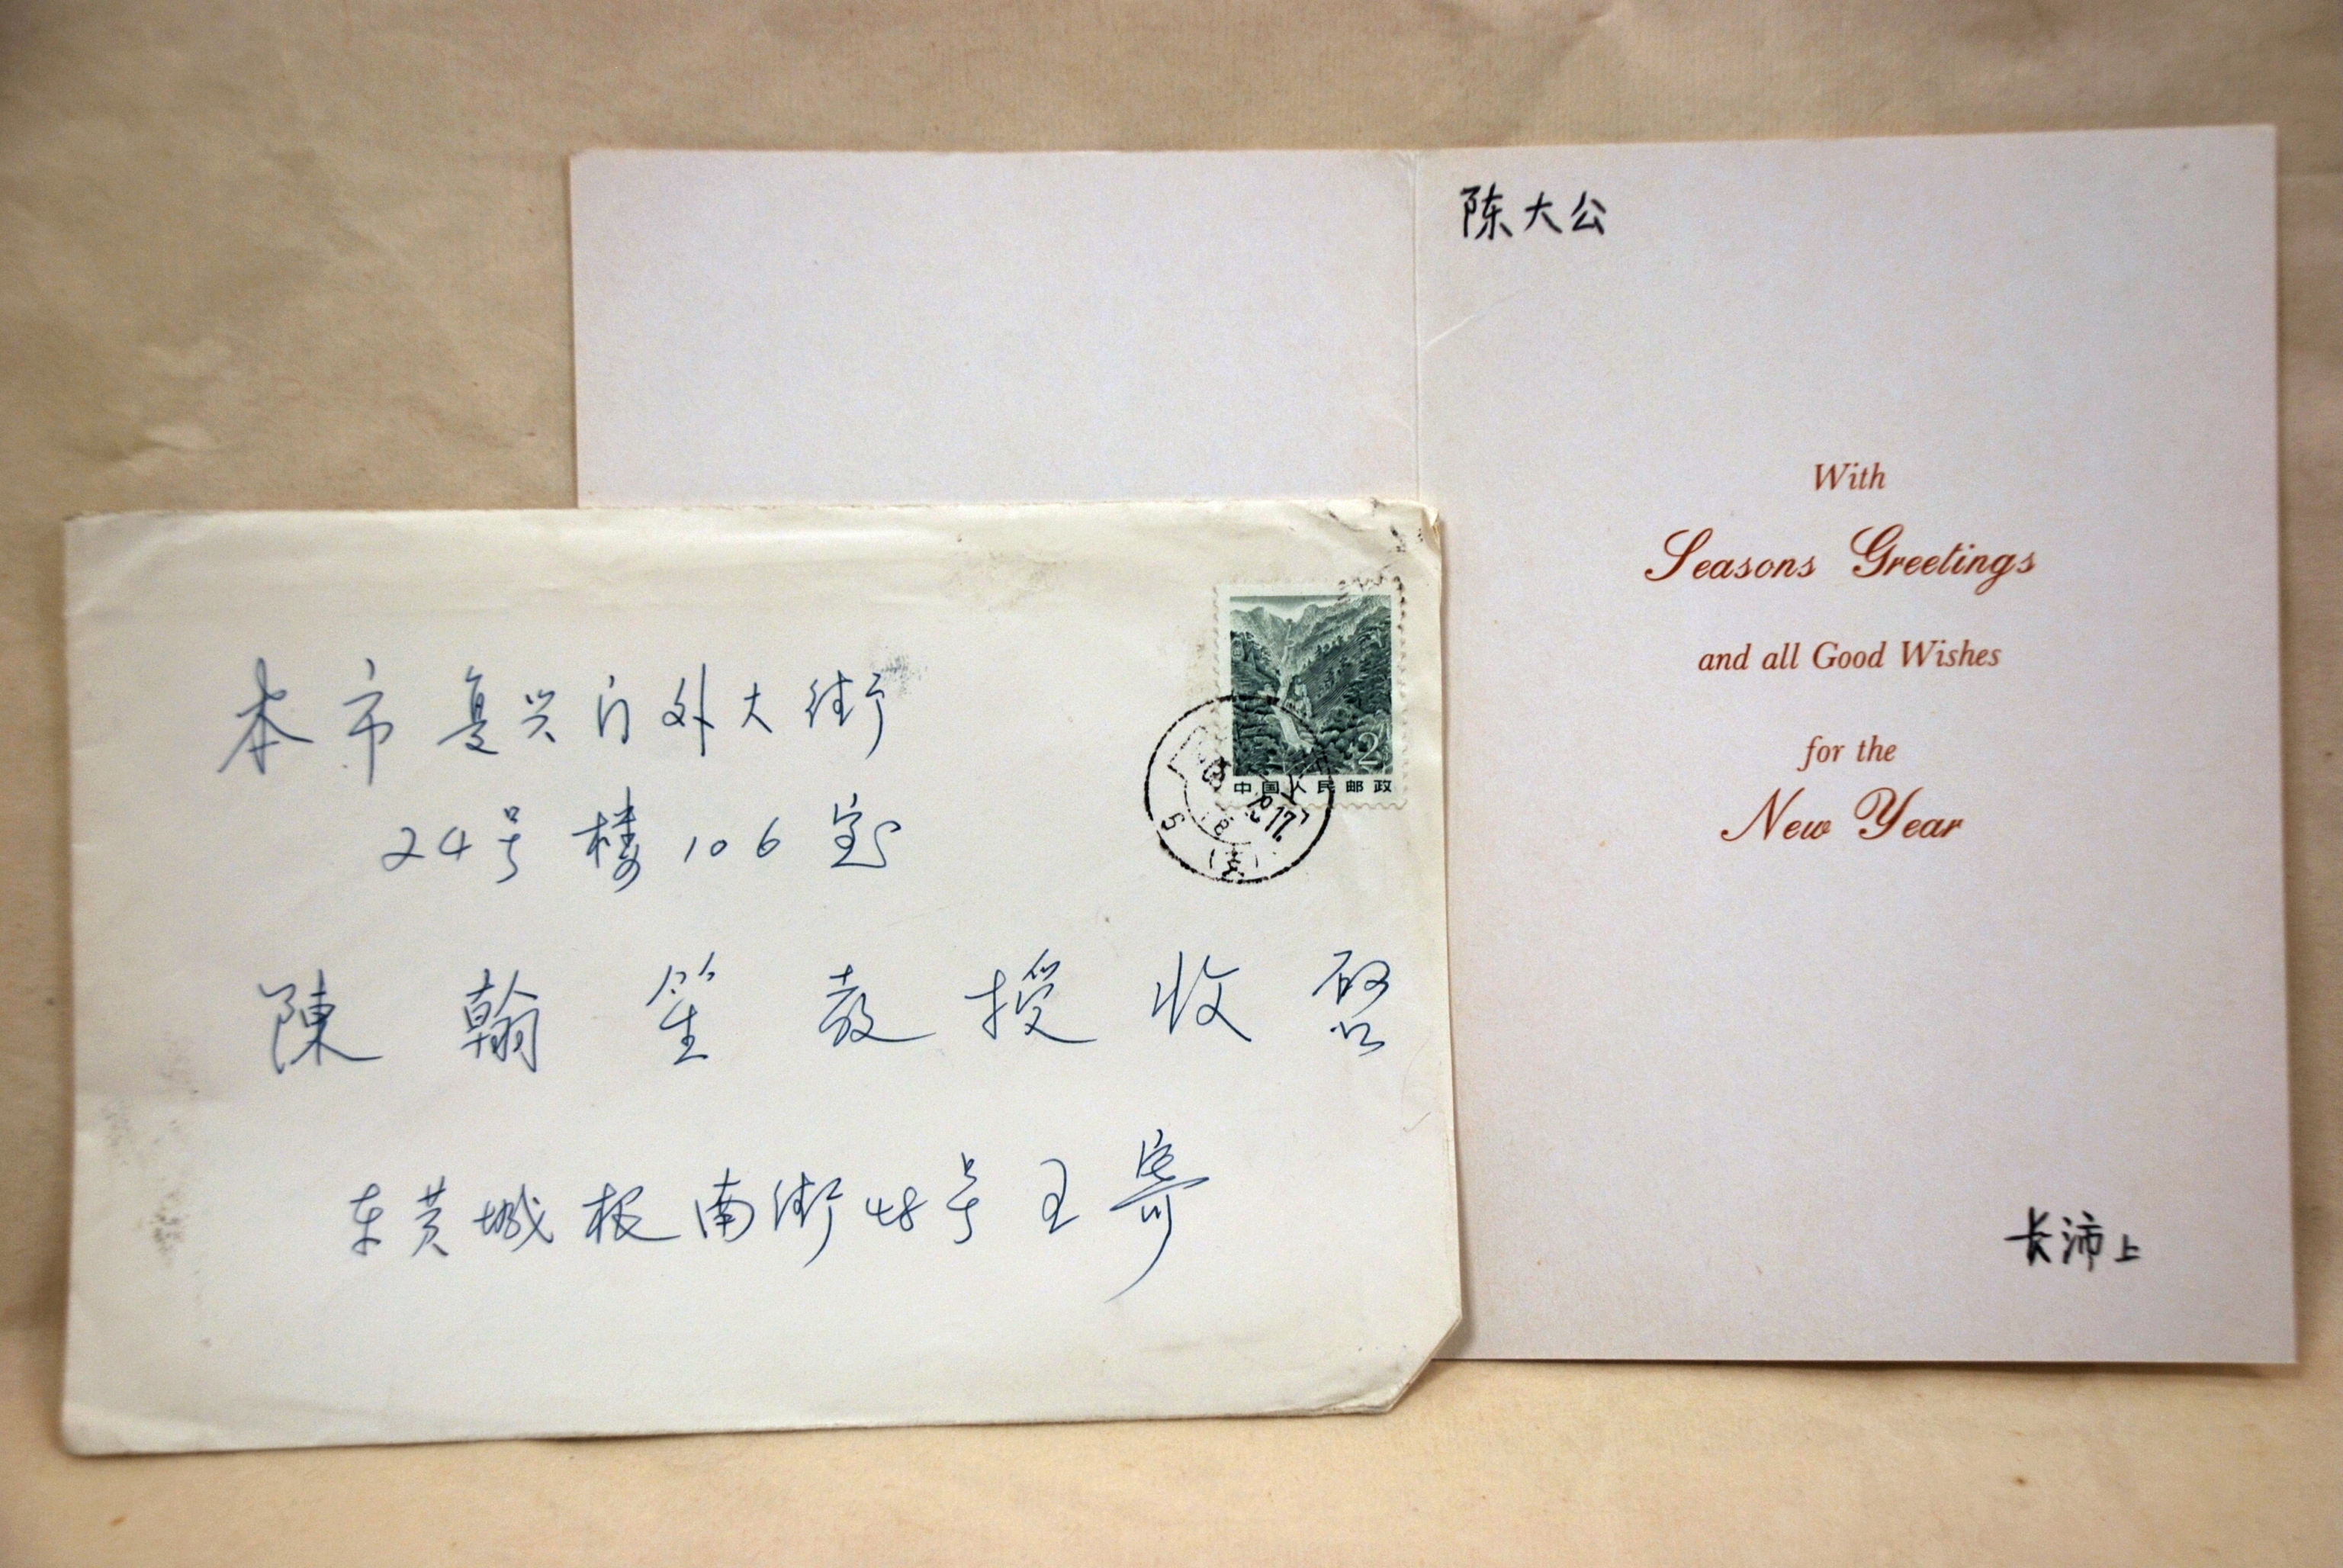 本市复兴门外大街
24号楼106室
陳翰笙教授收启
东黄城根南街48号王寄
2
中国人民邮政
陈大公
With
Seasons Greetings
and all Good Wishes
for the
New Year
长沛上